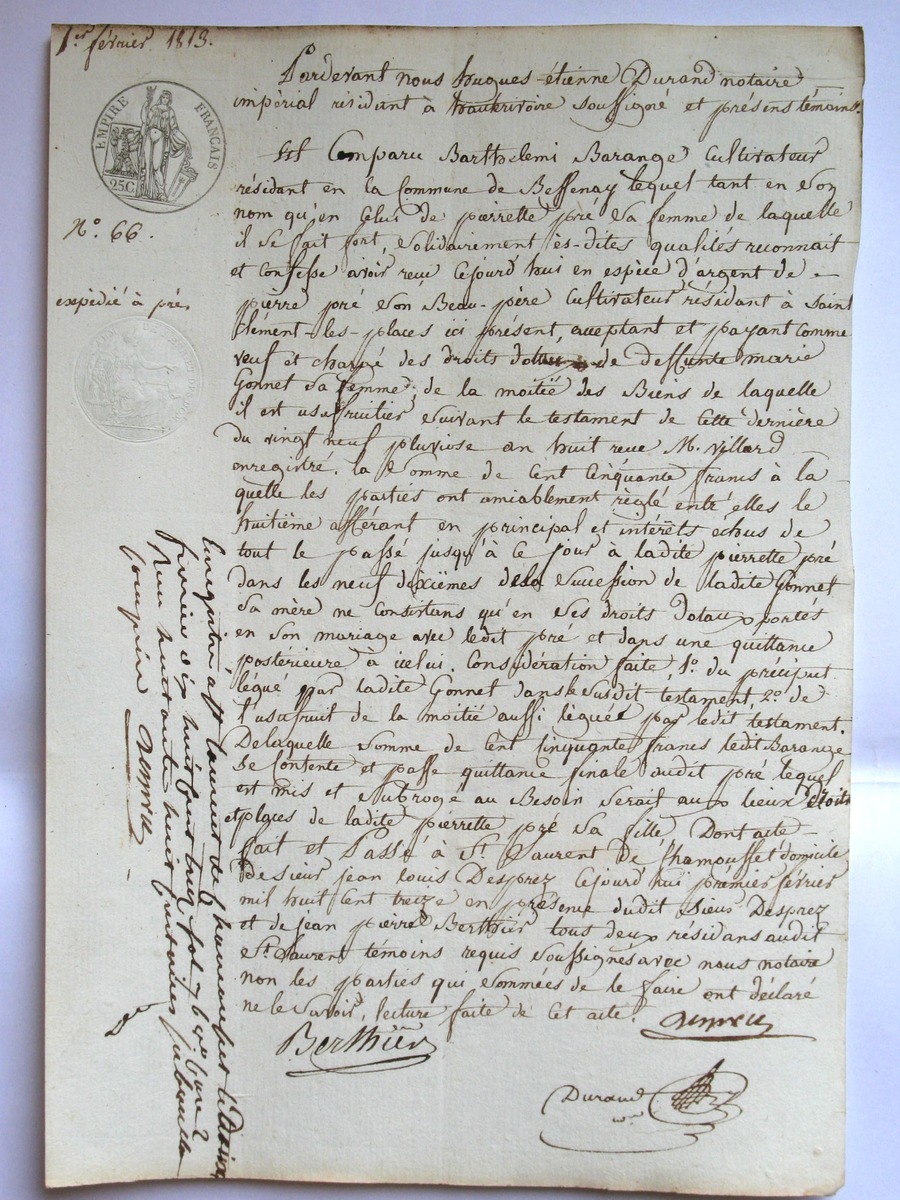 1.er février 1813.
EMPIRE FRANÇAIS
25C
N.o 66.
expédié à pré
Pardevant nous hugues-étienne Durand notaire
impérial résidant à hauterivoire soussigné et présens témoins.
Est Comparu Barthelemi Barange Cultivateur
résidant en la Commune de Bessenay lequel tant en son
nom qu'en celui de pierrette pré sa femme de laquelle
il se fait fort, solidairement ès-dites qualités reconnait
et confesse avoir reçu cejourd'hui en espèce d'argent de
pierre pré son Beau-père Cultivateur résidant à saint
Clément-les-places ici présent, acceptant et payant comme
veuf et chargé des droits dotaux de deffunte marie
Gonnet sa femme, de la moitié des Biens de laquelle
il est usufruitier suivant le testament de cette dernière
du vingt neuf pluviose an huit reçu M. Villard
enregistré. la somme de Cent Cinquante francs à la
quelle les parties ont amiablement réglé entr'elles le
huitième afférant en principal et intérêts échus de
tout le passé jusqu'à ce jour à ladite pierrette pré
dans les neuf dixièmes de la succession de ladite Gonnet
sa mère ne consistans qu'en ses droits dotaux portés
en son mariage avec ledit pré et dans une quittance
postérieure à icelui. Considération faite, 1.o du préciput
légué par ladite Gonnet dans le susdit testament, 2.o de
l'usufruit de la moitié aussi légué par ledit testament.
De laquelle somme de Cent cinquante francs ledit Barange
se Contente et passe quittance finale audit pré lequel
est mis et subrogé au Besoin serait aux lieux droits
et places de ladite pierrette pré sa fille, Dont acte
fait et Passé à St. Laurent De Chamousset domicile
de sieur jean louis Desprez cejourd'hui prémier février
mil huit cent treize en présence dudit sieur Desprez
et de jean pierre Berthier tous deux résidans audit
St. Laurent témoins requis soussignés avec nous notaire
non les parties qui sommées de le faire ont déclaré
ne le savoir, lecture faite de cet acte.
Berthier
Durand
Enregistré à St Laurent de Chamousset le douze
février dix huit cent treize fol. 76
Reçu